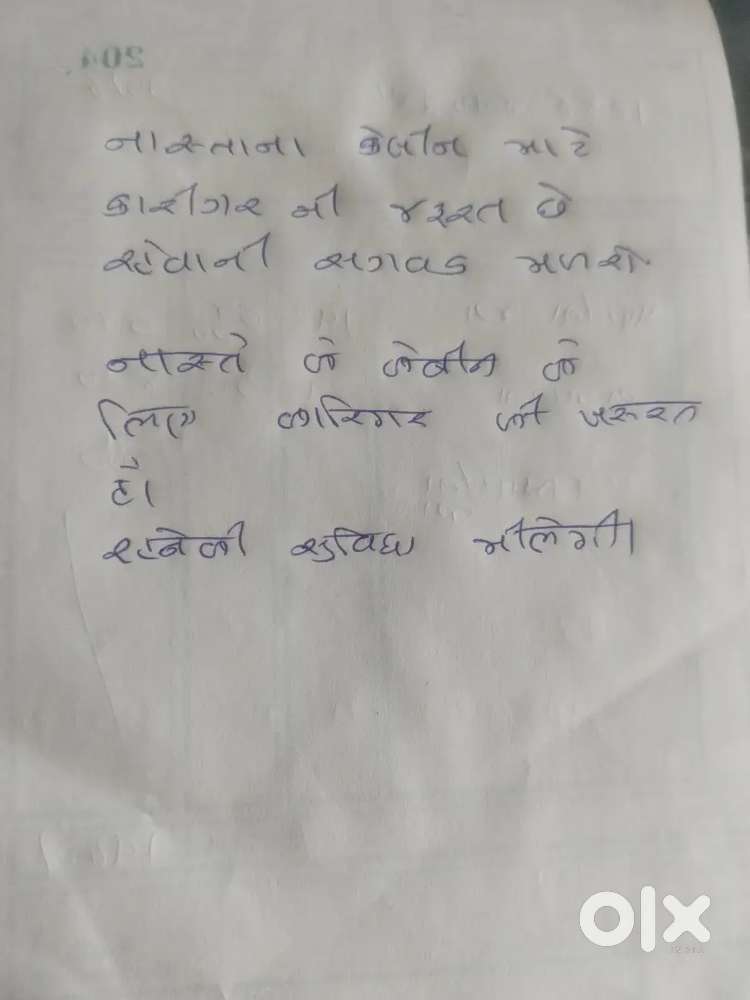 નાસ્તાના કેબીન માટે
કારીગર ની જરૂરત છે
રહેવાની સગવડ મળશે.
नास्ते के केबीन के
लिए कारिगर की जरुरत
है।
रहनेकी सुविधा मीलेगी।
olx